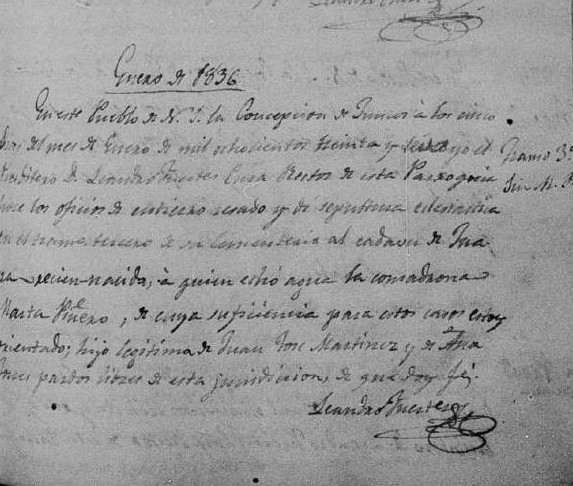 Leandro Fuertes
Enero de 1836
En este Pueblo de N. S. la Concepcion de Juncos à los cinco
dias del mes de Enero de mil ochocientos treinta y seis yo el
Presbitero D. Leandro Fuertes Cura Rector de esta Parroquia
hice los oficios de entierro resado y de sepultura eclesiastica
en el tramo tercero de su Cementerio al cadaver de Jua
na recien-nacida, à quien echó agua la comadrona
Marta Piñero, de cuya suficiencia para estos casos estoy
orientado; hija legitima de Juan Jose Martinez y de Ana
pardos libres de esta jurisdiccion, de que doy fé.
Leandro Fuertes
Tramo 3º
Sin M.